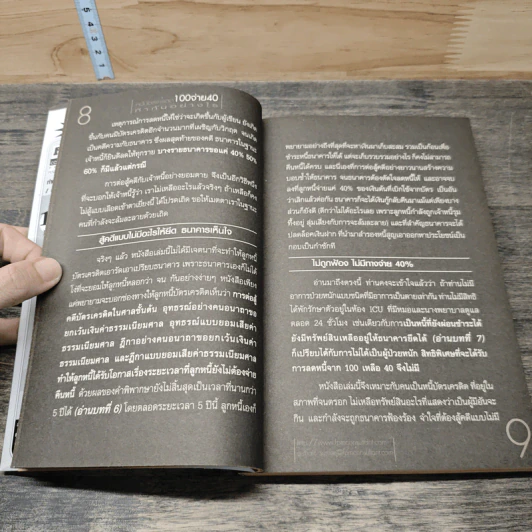 5
4
3
2
8
100จ่าย40
เหตุการณ์การลดหนี้ใช่ว่าจะเกิดขึ้นกับผู้เขียน ยังเกิด
ขึ้นกับคนมีบัตรเครดิตอีกจำนวนมากที่เผชิญกับวิกฤต จนเกิด
เป็นคดีความกับธนาคาร ซึ่งผลสุดท้ายของคดี ธนาคารในฐานะ
เจ้าหนี้ก็ยินดีลดให้ทุกราย บางรายธนาคารขอแค่ 40% 50%
60% ก็มีแล้วแต่กรณี
การต่อสู้คดีกับเจ้าหนี้อย่างยอมตาย จึงเป็นอีกวิธีหนึ่ง
ที่จะบอกให้เจ้าหนี้รู้ว่า เราไม่เหลืออะไรแล้วจริงๆ ถ้าเหลือก็คง
คนที่กำลังจะล้มละลายด้วยเถิด
สู้คดีแบบไม่มีอะไรให้ยึด ธนาคารเห็นใจ
จริงๆ แล้ว หนังสือเล่มนี้ไม่ได้มีเจตนาที่จะทำให้ลูกหนี้
บัตรเครดิตเอารัดเอาเปรียบธนาคาร เพราะธนาคารเองก็ไม่ได้
โง่ที่จะยอมให้ลูกหนี้หลอกว่า จน กันอย่างง่ายๆ หนังสือเพียง
แค่พยายามจะบอกช่องทางให้ลูกหนี้บัตรเครดิตเห็นว่า การต่อสู้
คดีบัตรเครดิตในศาลชั้นต้น อุทธรณ์อย่างคนอนาถาขอ
ยกเว้นเงินค่าธรรมเนียมศาล อุทธรณ์แบบยอมเสียค่า
ธรรมเนียมศาล ฎีกาอย่างคนอนาถาขอยกเว้นเงินค่า
ธรรมเนียมศาล และฎีกาแบบยอมเสียค่าธรรมเนียมศาล
ทำให้ลูกหนี้ได้รับโอกาสเรื่องระยะเวลาที่ลูกหนี้ยังไม่ต้องจ่าย
คืนหนี้ ด้วยผลของคำพิพากษายังไม่สิ้นสุดเป็นเวลาที่นานกว่า
5 ปีได้ (อ่านบทที่ 6) โดยตลอดระยะเวลา 5 ปีนี้ ลูกหนี้เองก็
พยายามอย่างถึงที่สุดที่จะหาเงินมาเก็บสะสม รวมเป็นก้อนเพื่อ
ชำระหนี้ธนาคารให้ได้ แต่จะเก็บรวบรวมอย่างไร ก็คงไม่สามารถ
ทันหนี้ได้ครบ และนี่เองที่การต่อสู้คดีอย่างยาวนานสร้างความ
บอบช้ำให้ธนาคาร จนธนาคารต้องตัดใจลดหนี้ให้ และอาจจะ
ลงที่ลูกหนี้จ่ายแค่ 40% ของเงินต้นที่เบิกใช้จากบัตร เป็นอัน
ว่าเลิกแล้วต่อกัน ธนาคารก็จะได้เงินกู้กลับคืนมาแม้แต่เพียงบาง
ส่วนก็ยังดี (ดีกว่าไม่ได้อะไรเลย เพราะลูกหนี้กำลังถูกเจ้าหนี้รุม
ทึ้งอยู่ สุ่มเสี่ยงกับภาวะล้มละลาย) และที่สำคัญธนาคารจะได้
กอบเป็นกำซักที
ไม่ถูกฟ้อง ไม่มีทางจ่าย 40%
อ่านมาถึงตรงนี้ ท่านคงจะเข้าใจแล้วว่า ถ้าท่านไม่มี
อาการป่วยหนักแบบชนิดที่มีอาการเป็นตายเท่ากัน ท่านไม่มีสิทธิ
ได้พักรักษาตัวอยู่ในห้อง ICU ที่มีหมอและนางพยาบาลดูแล
ตลอด 24 ชั่วโมง เช่นเดียวกับการเป็นหนี้ที่ยังผ่อนชำระได้
ยังมีทรัพย์สินเหลืออยู่ให้ธนาคารยึดได้ (อ่านบทที่ 7)
ก็เปรียบได้กับการไม่ได้เป็นผู้ป่วยหนัก สิทธิพิเศษที่จะได้รับ
การลดหนี้จาก 100 เหลือ 40 จึงไม่มี
หนังสือเล่มนี้จึงเหมาะกับคนเป็นหนี้บัตรเครดิต ที่อยู่ใน
สภาพที่จนตรอก ไม่เหลือทรัพย์สินอะไรที่แสดงว่าเป็นผู้มีอันจะ
กิน และกำลังจะถูกธนาคารฟ้องร้อง จำใจที่ต้องสู้คดีแบบไม่มี
9